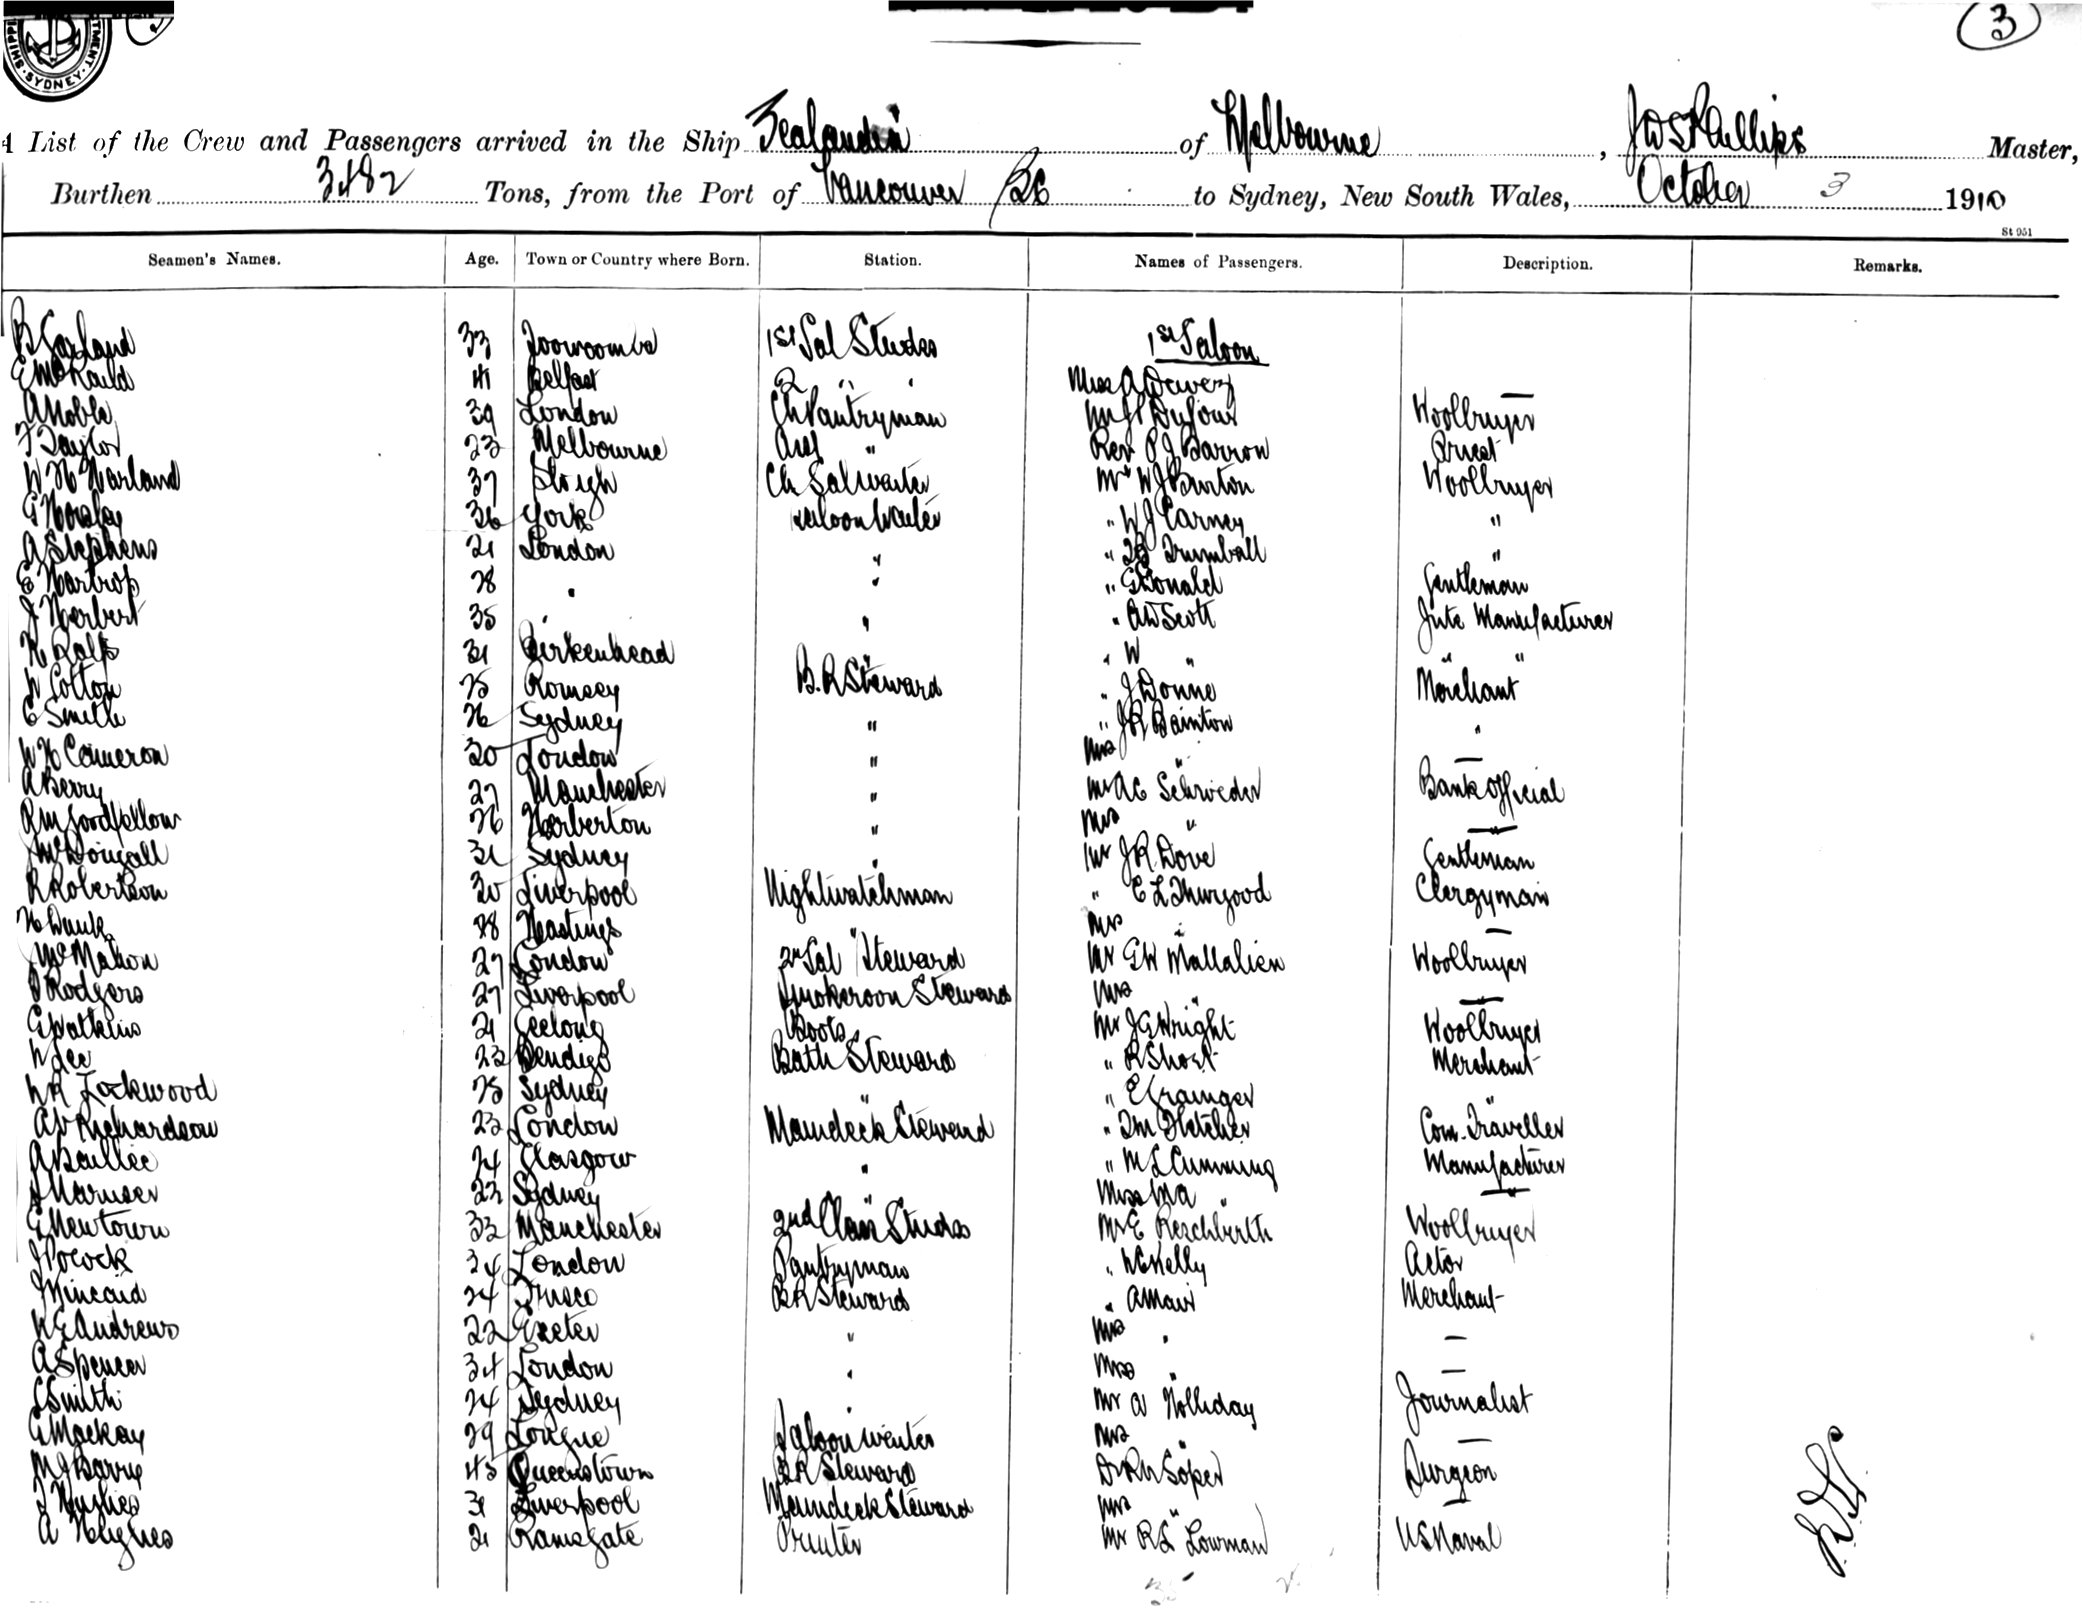 3
SYDNEY
A List of the Crew and Passengers arrived in the Ship Zealandia of Melbourne, J W S Phillips Master,
Burthen 3482 Tons, from the Port of Vancouver BC to Sydney, New South Wales, October 3 1910
St 951
Seamen's Names. Age. Town or Country where Born. Station. Names of Passengers. Description. Remarks.
B Garland 33 Toowoomba 1st Sal Stwdss 1st Saloon
41 Belfast 2 " " Miss A
A Noble 39 London Ch Pantryman Mr Dufour Woolbuyer
F Taylor 23 Melbourne Asst " Rev P J Barron Priest
W H Harland 37 Slough Ch Sal waiter Mr W J Burton Woolbuyer
G Horsley 36 York Saloon Waiter " W J Carney "
A Stephens 21 London " " Trumball "
E Hartrop 28 " " " G Donald Gentleman
J Herbert 35 " " " A W Scott Jute Manufacturer
H Rolfs 31 Birkenhead " " W " " "
W Cotton 25 Romsey B.R Steward " J Donne Merchant
C Smith 26 Sydney " " J R Bainton "
W H Cameron 30 London " Mrs " —
A Berry 27 Manchester " Mr A C Schroeder Bank Official
R M Goodfellow 26 Herberton " Mrs " —
J McDougall 31 Sydney " Mr J R Dove Gentleman
R Robertson 30 Liverpool Nightwatchman " E L Thurgood Clergyman
28 Hastings " Mrs " —
McMahon 27 London 2nd Sal Steward Mr G W Mallalieu Woolbuyer
Rodgers 27 Liverpool Smokeroom Steward Mrs " —
G Watkins 21 Geelong Boots Mr J G Wright Woolbuyer
W Lee 23 Bendigo Bath Steward " R Short Merchant
W R Lockwood 25 Sydney " " E Grainger "
A V Richardson 23 London Maindeck Steward " Fletcher Com. Traveller
A Baillie 24 Glasgow " " M L Cumming Manufacturer
23 Sydney " Miss M A " —
G Newtown 33 Manchester 2nd Class Stwdss Mr E Woolbuyer
J Pocock 34 London Pantryman " W Kelly Actor
J Kincaid 24 Frisco B R Steward " A Mair Merchant
W E Andrews 22 Exeter " Mrs " —
A Spencer 34 London " Miss " —
Smith 24 Sydney " Mr A Holliday Journalist
G Mackay 29 Saloon waiter Mrs " —
M J Barry 43 Queenstown B R Steward Dr Soper Surgeon
J Hughes 31 Liverpool Maindeck Steward Mrs " —
A Hughes 21 Ramsgate Printer Mr R S Lowman US Naval